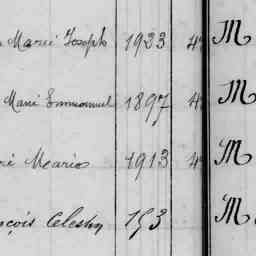 Marié Joseph 1923 4 M
Marie Emmanuel 1897 4 M
ré Mario 1913 4 M
nçois Celestin 193 M